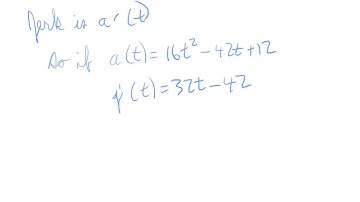 Jerk is a'(t)
So if a(t)=16t²-42t+12
j(t)=32t-42